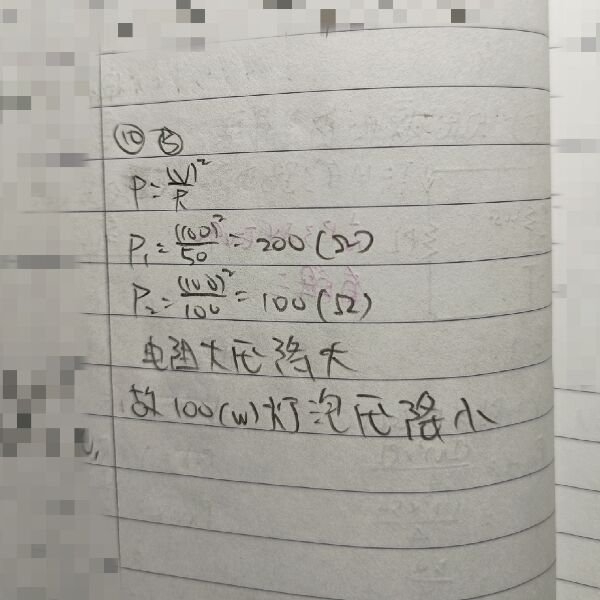 ⑩ Ⓑ
P=(V)²/R
P₁=(100)²/50=200(Ω)
P₂=(100)²/100=100(Ω)
电阻大压降大
故100(W)灯泡压降小